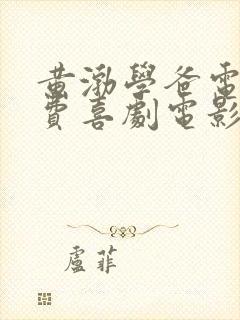 黄渤學爸電
費喜劇電影
盧菲